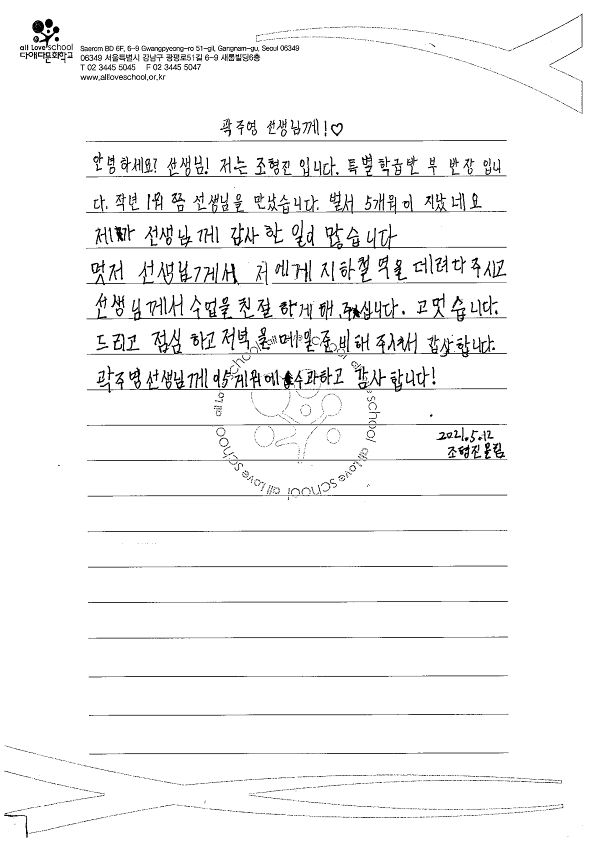 all Love school
다애다문화학교
Saerom BD 6F, 6-9 Gwangpyeong-ro 51-gil, Gangnam-gu, Seoul 06349
06349 서울특별시 강남구 광평로51길 6-9 새롬빌딩6층
T 02 3445 5045 F 02 3445 5047
www.allloveschool.or.kr
곽주영 선생님께!♡
안녕하세요? 선생님! 저는 조형진 입니다. 특별학급반 부 반장 입니
다. 작년 1워 쯤 선생님을 만났습니다. 벌서 5개워이 지났네요
제가 선생님께 감사 한 일이 많습니다
먼저 선생님께서 저에게 지하철역을 데려다주시고
선생님께서 수업을 친절 하게 해 주십니다. 고멋습니다.
드리고 점심 하고 저녁 을 매일 준비해 주셔서 감사합니다.
곽주영선생님께 5게워에 수과하고 감사합니다!
2021.5.12
조형진올림
all Love school all Love school all Love school all Love school